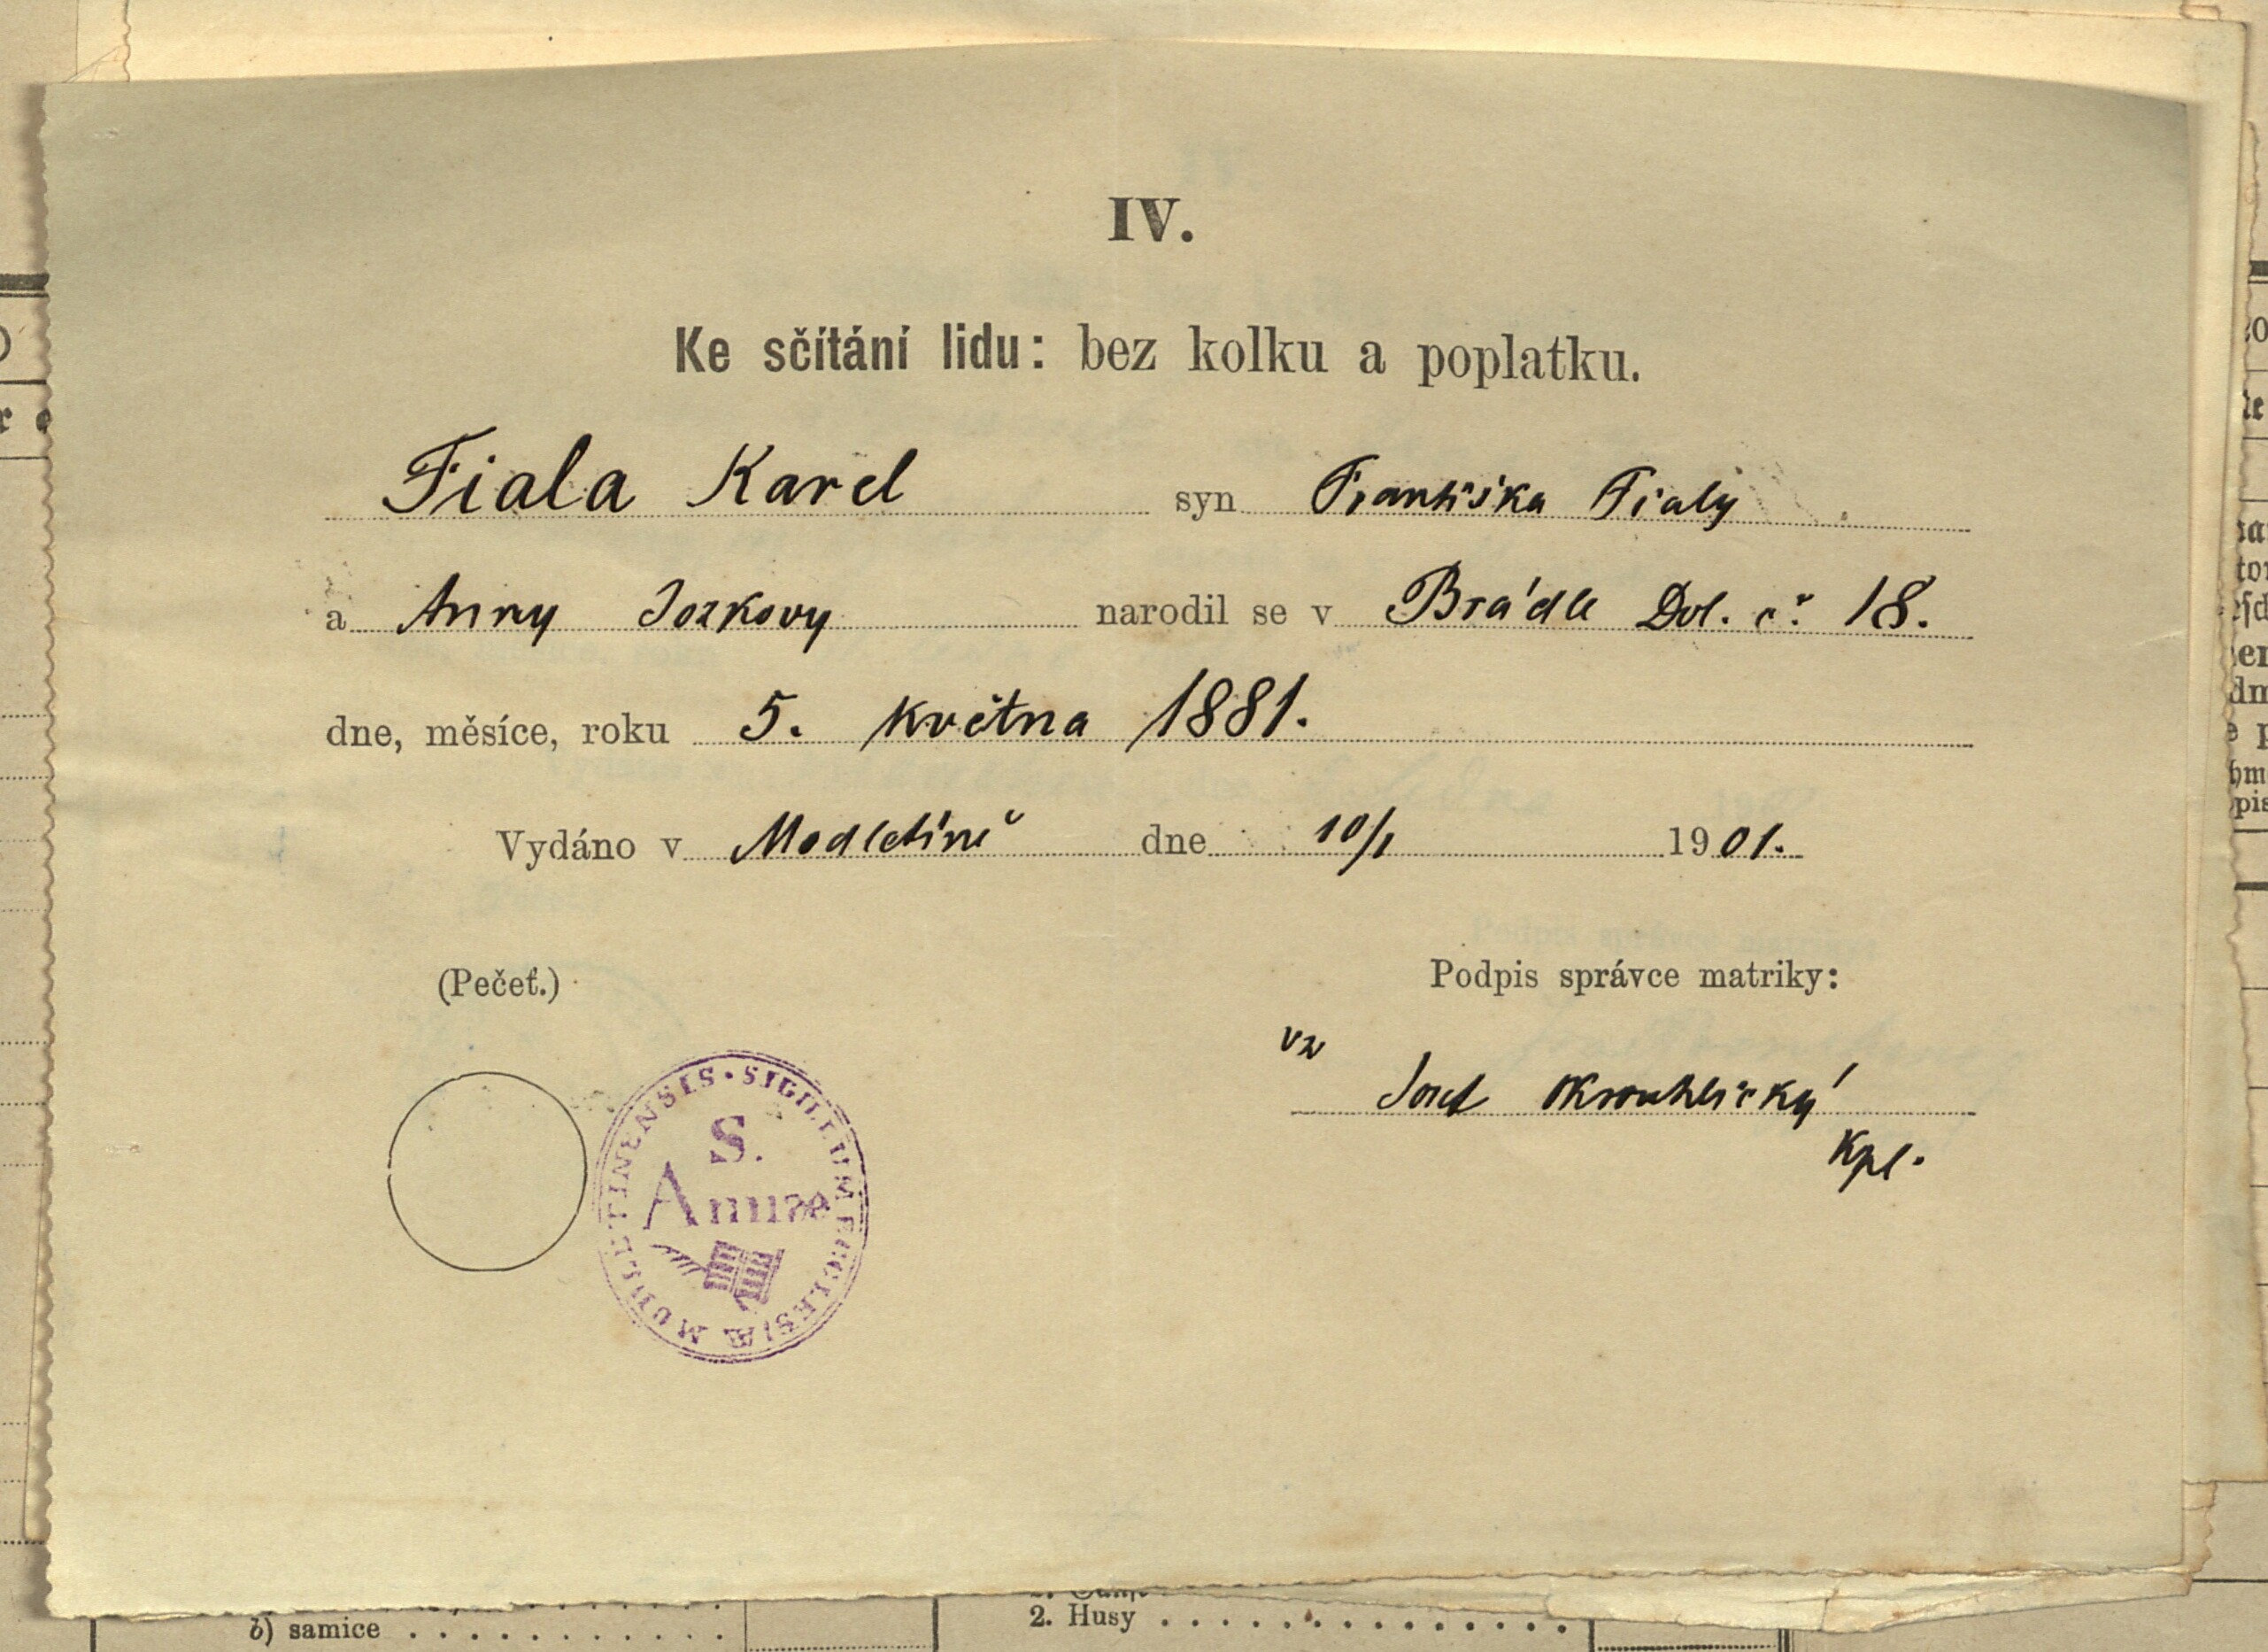 IV.
Ke sčítání lidu: bez kolku a poplatku.
Fiala Karel syn Františka Fialy
a Anny Jozkovy narodil se v Brádle Dol. č. 18.
dne, měsíce, roku 5. května 1881.
Vydáno v Modletíně dne 10/1 1901.
(Pečeť.)
Podpis správce matriky:
vz
Josef Okrouhlický
Kpl.
SIGILLUM ECCLESIÆ MODLETINENSIS
S.
Annae
b) samice
2. Husy